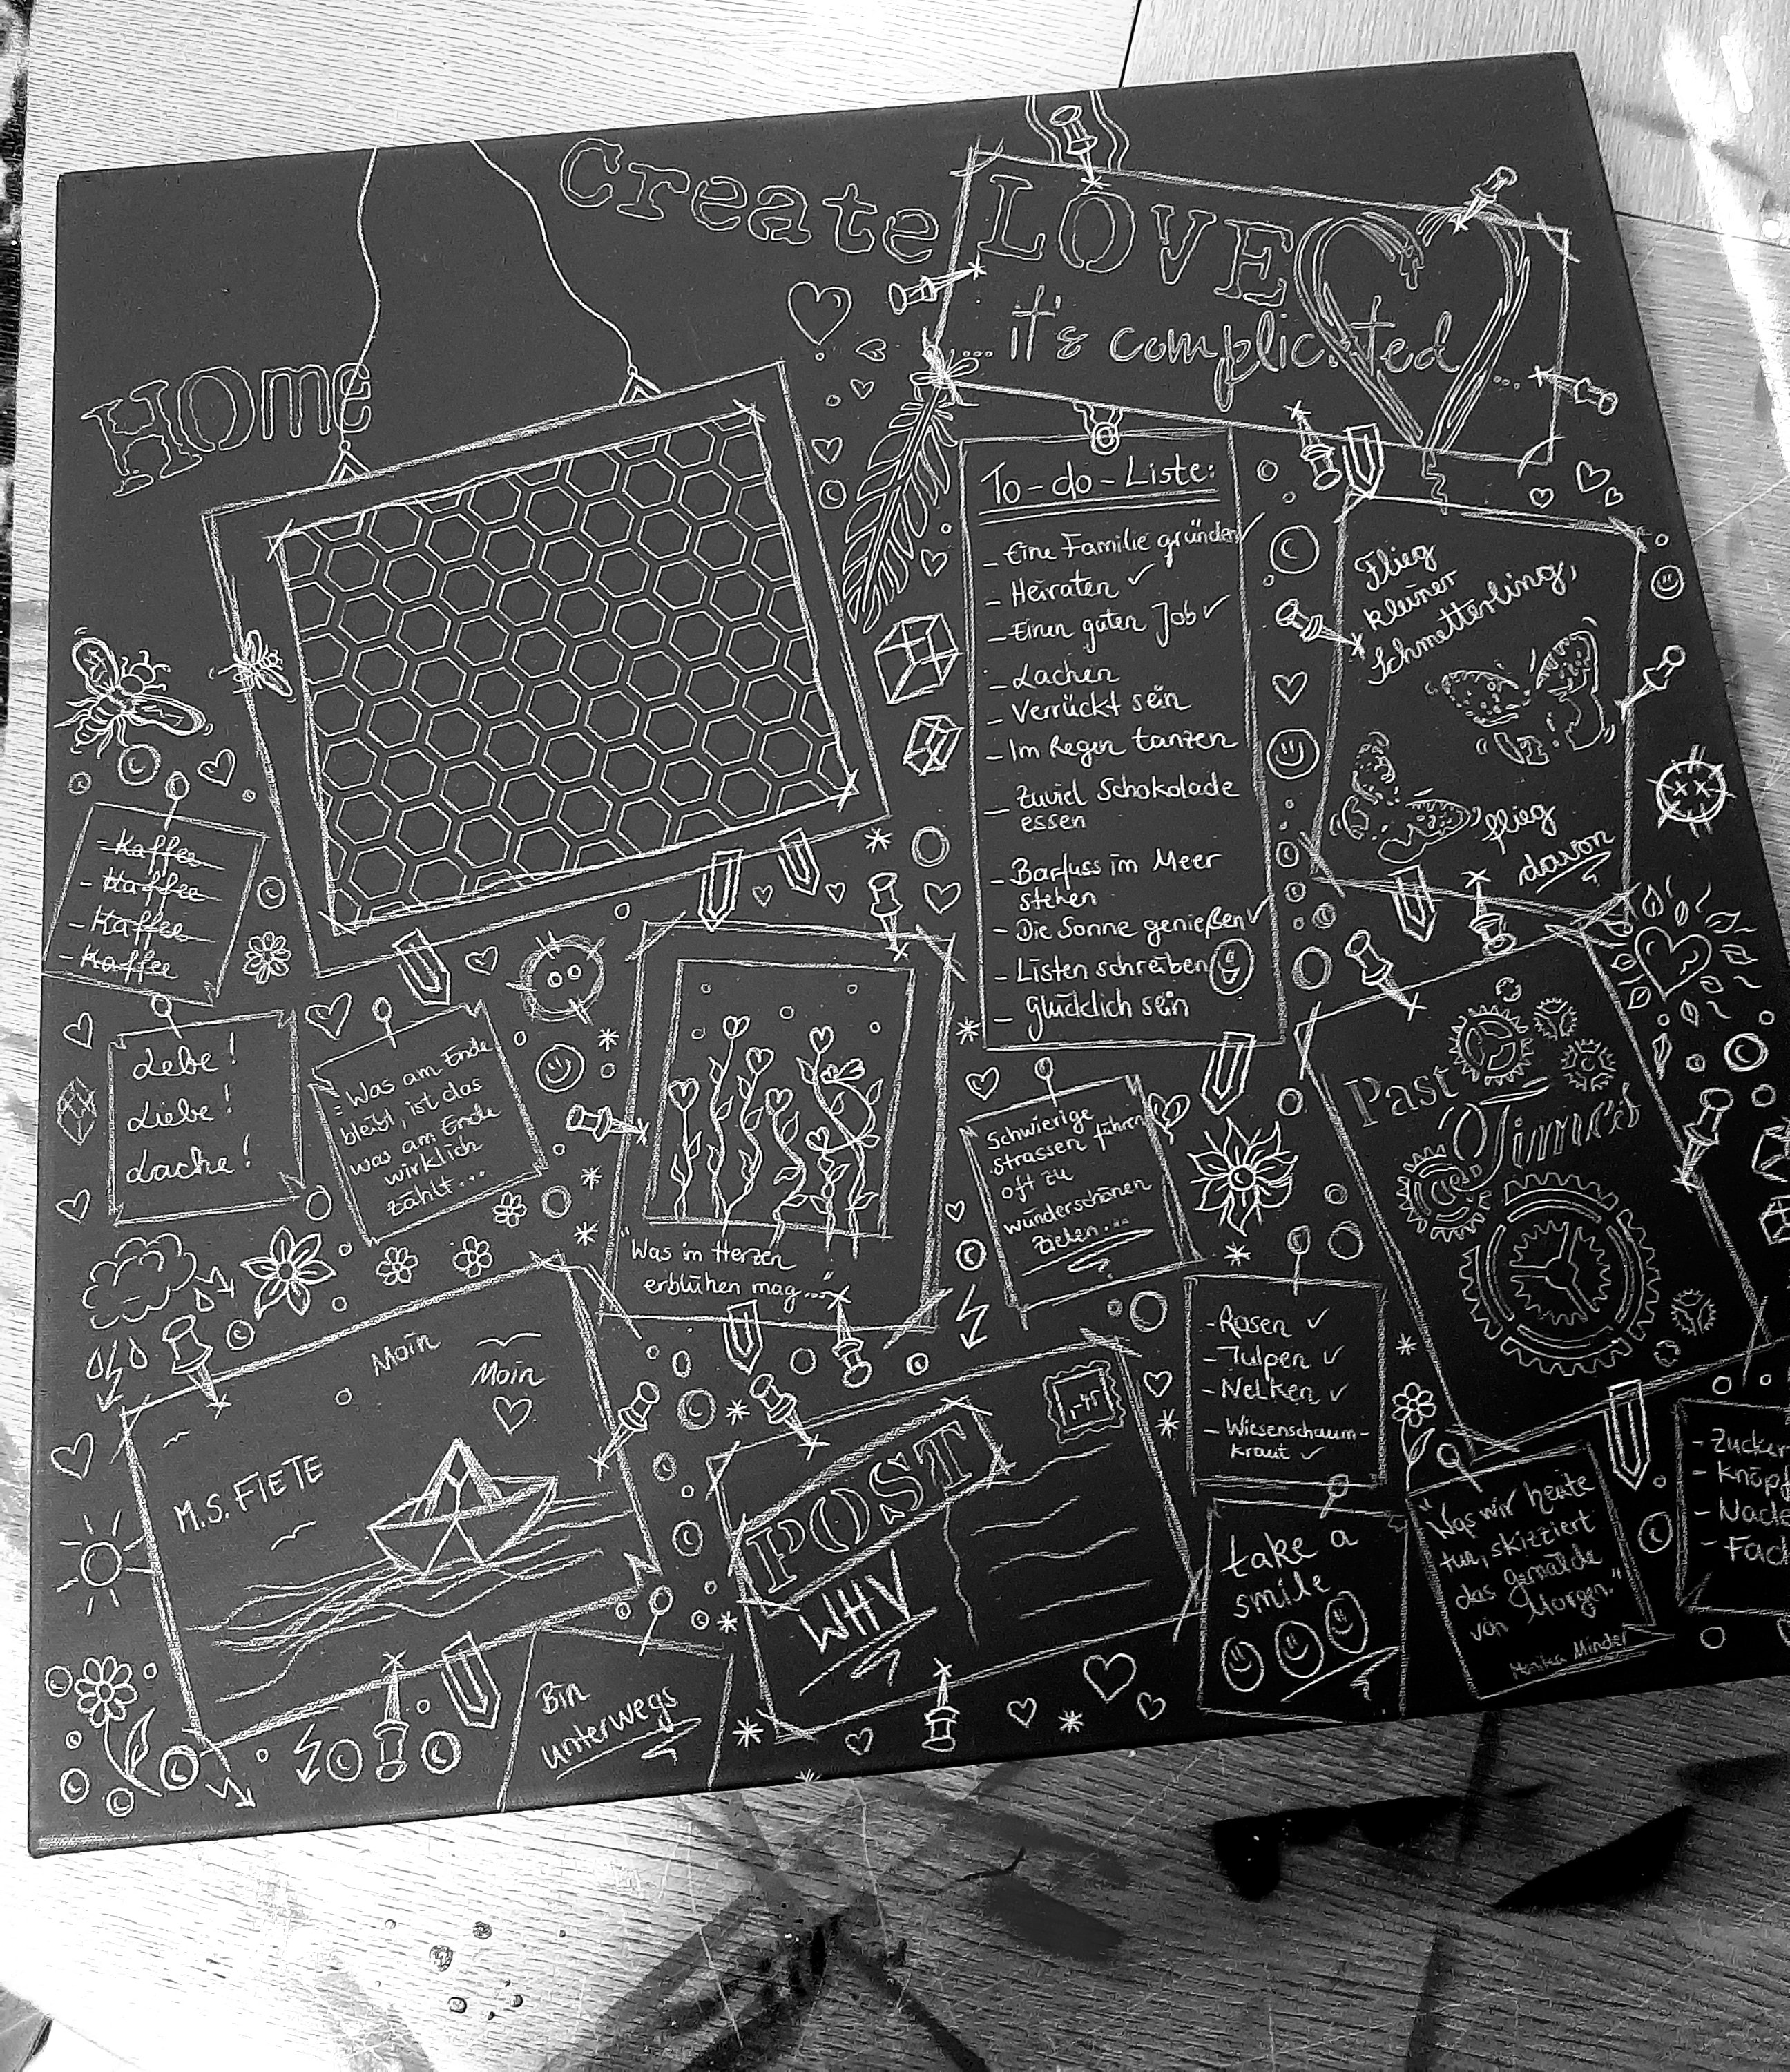 Create
Home
LOVE
... it's complicated ...
To-do-Liste:
- Eine Familie gründen ✓
- Heiraten ✓
- Einen guten Job ✓
- Lachen
- Verrückt sein
- Im Regen tanzen
- Zuviel Schokolade
essen
- Barfuss im Meer
stehen
- Die Sonne genießen ✓
- Listen schreiben
- glücklich sein
Flieg
kleiner
Schmetterling,
flieg
davon
- Kaffee
- Kaffee
- Kaffee
- Kaffee
Lebe!
Liebe!
Lache!
Was am Ende
bleibt, ist das
was am Ende
wirklich
zählt...
"Was im Herzen
erblühen mag..."
Schwierige
strassen führen
oft zu
wunderschönen
Zielen...
Past
Times
Moin
Moin
M.S. FIETE
POST
WHV
- Rosen ✓
- Tulpen ✓
- Nelken ✓
- Wiesenschaum-
kraut ✓
take a
smile
"Was wir heute
tun, skizziert
das gemälde
von Morgen."
Monika Minder
- Zucker
- Knöpf
- Nade
- Fad
Bin
unterwegs